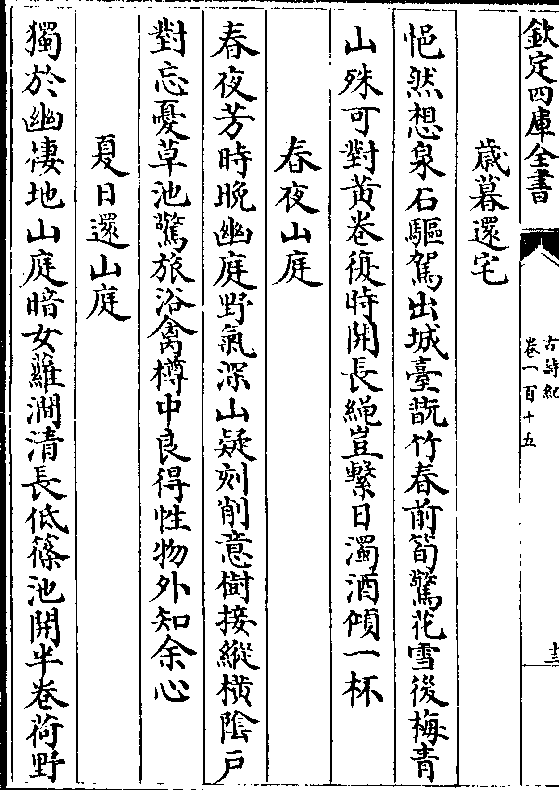 欽定四庫全書
古詩紀
卷一百十五
十三
歳暮還宅
悒然想泉石驅駕出城臺翫竹春前筍驚花雪後梅青
山殊可對黄卷復時開長繩豈繫日濁酒傾一杯
春夜山庭
春夜芳時晚幽庭野氣深山疑刻削意樹接縱横陰戸
對忘憂草池驚旅浴禽樽中良得性物外知余心
夏日還山庭
獨於幽棲地山庭暗女蘿澗清長低篠池開半卷荷野